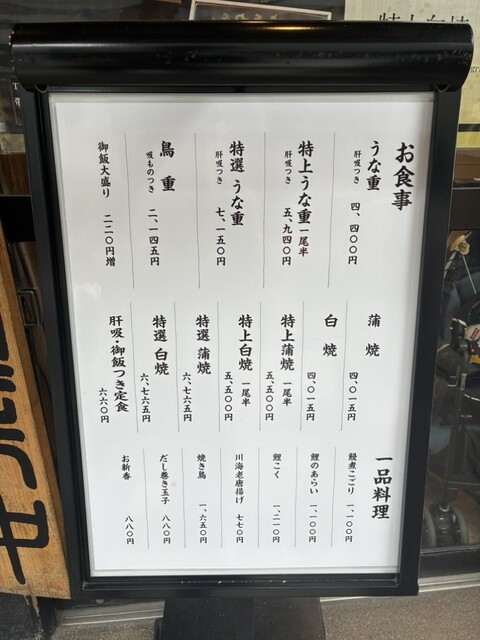 お食事
うな重
肝吸つき
四、四〇〇円
特上うな重 一尾半
肝吸つき
五、九四〇円
特選 うな重
肝吸つき
七、一五〇円
鳥重
吸ものつき
二、一四五円
御飯大盛り
二二〇円増
蒲焼
四、〇一五円
白焼
四、〇一五円
特上蒲焼 一尾半
五、五〇〇円
特上白焼 一尾半
五、五〇〇円
特選 蒲焼
六、七六五円
特選 白焼
六、七六五円
肝吸・御飯つき定食
六六〇円
一品料理
鰻煮こごり
一、一〇〇円
鯉のあらい
一、一〇〇円
鯉こく
一、二一〇円
川海老唐揚げ
七七〇円
焼き鳥
一、六五〇円
だし巻き玉子
八八〇円
お新香
八八〇円